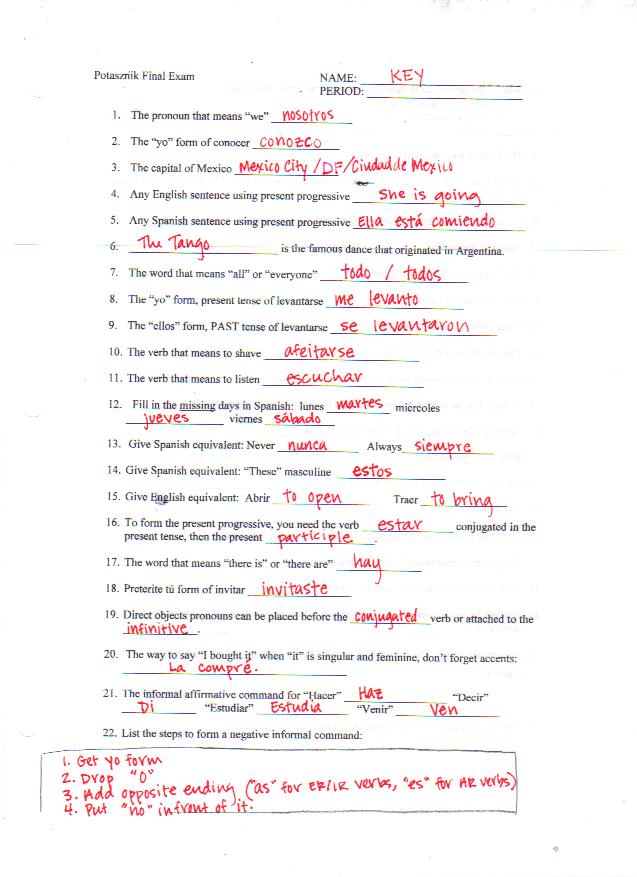 Potasznik Final Exam NAME: KEY
PERIOD:
1. The pronoun that means “we” nosotros
2. The “yo” form of conocer conozco
3. The capital of Mexico Mexico City / DF / Ciudad de Mexico
4. Any English sentence using present progressive She is going
5. Any Spanish sentence using present progressive Ella está comiendo
6. The Tango is the famous dance that originated in Argentina.
7. The word that means “all” or “everyone” todo / todos
8. The “yo” form, present tense of levantarse me levanto
9. The “ellos” form, PAST tense of levantarse se levantaron
10. The verb that means to shave afeitarse
11. The verb that means to listen escuchar
12. Fill in the missing days in Spanish: lunes martes miércoles
jueves viernes sábado
13. Give Spanish equivalent: Never nunca Always siempre
14. Give Spanish equivalent: “These” masculine estos
15. Give English equivalent: Abrir to open Traer to bring
16. To form the present progressive, you need the verb estar conjugated in the
present tense, then the present participle.
17. The word that means “there is” or “there are” hay
18. Preterite tú form of invitar invitaste
19. Direct objects pronouns can be placed before the conjugated verb or attached to the
infinitive.
20. The way to say “I bought it” when “it” is singular and feminine, don’t forget accents:
La compré.
21. The informal affirmative command for “Hacer” Haz “Decir”
Di “Estudiar” Estudia “Venir” Ven
22. List the steps to form a negative informal command:
1. Get yo form
2. Drop "O"
3. Add opposite ending ("as" for ER/IR verbs, "es" for AR verbs)
4. Put "no" in front of it.